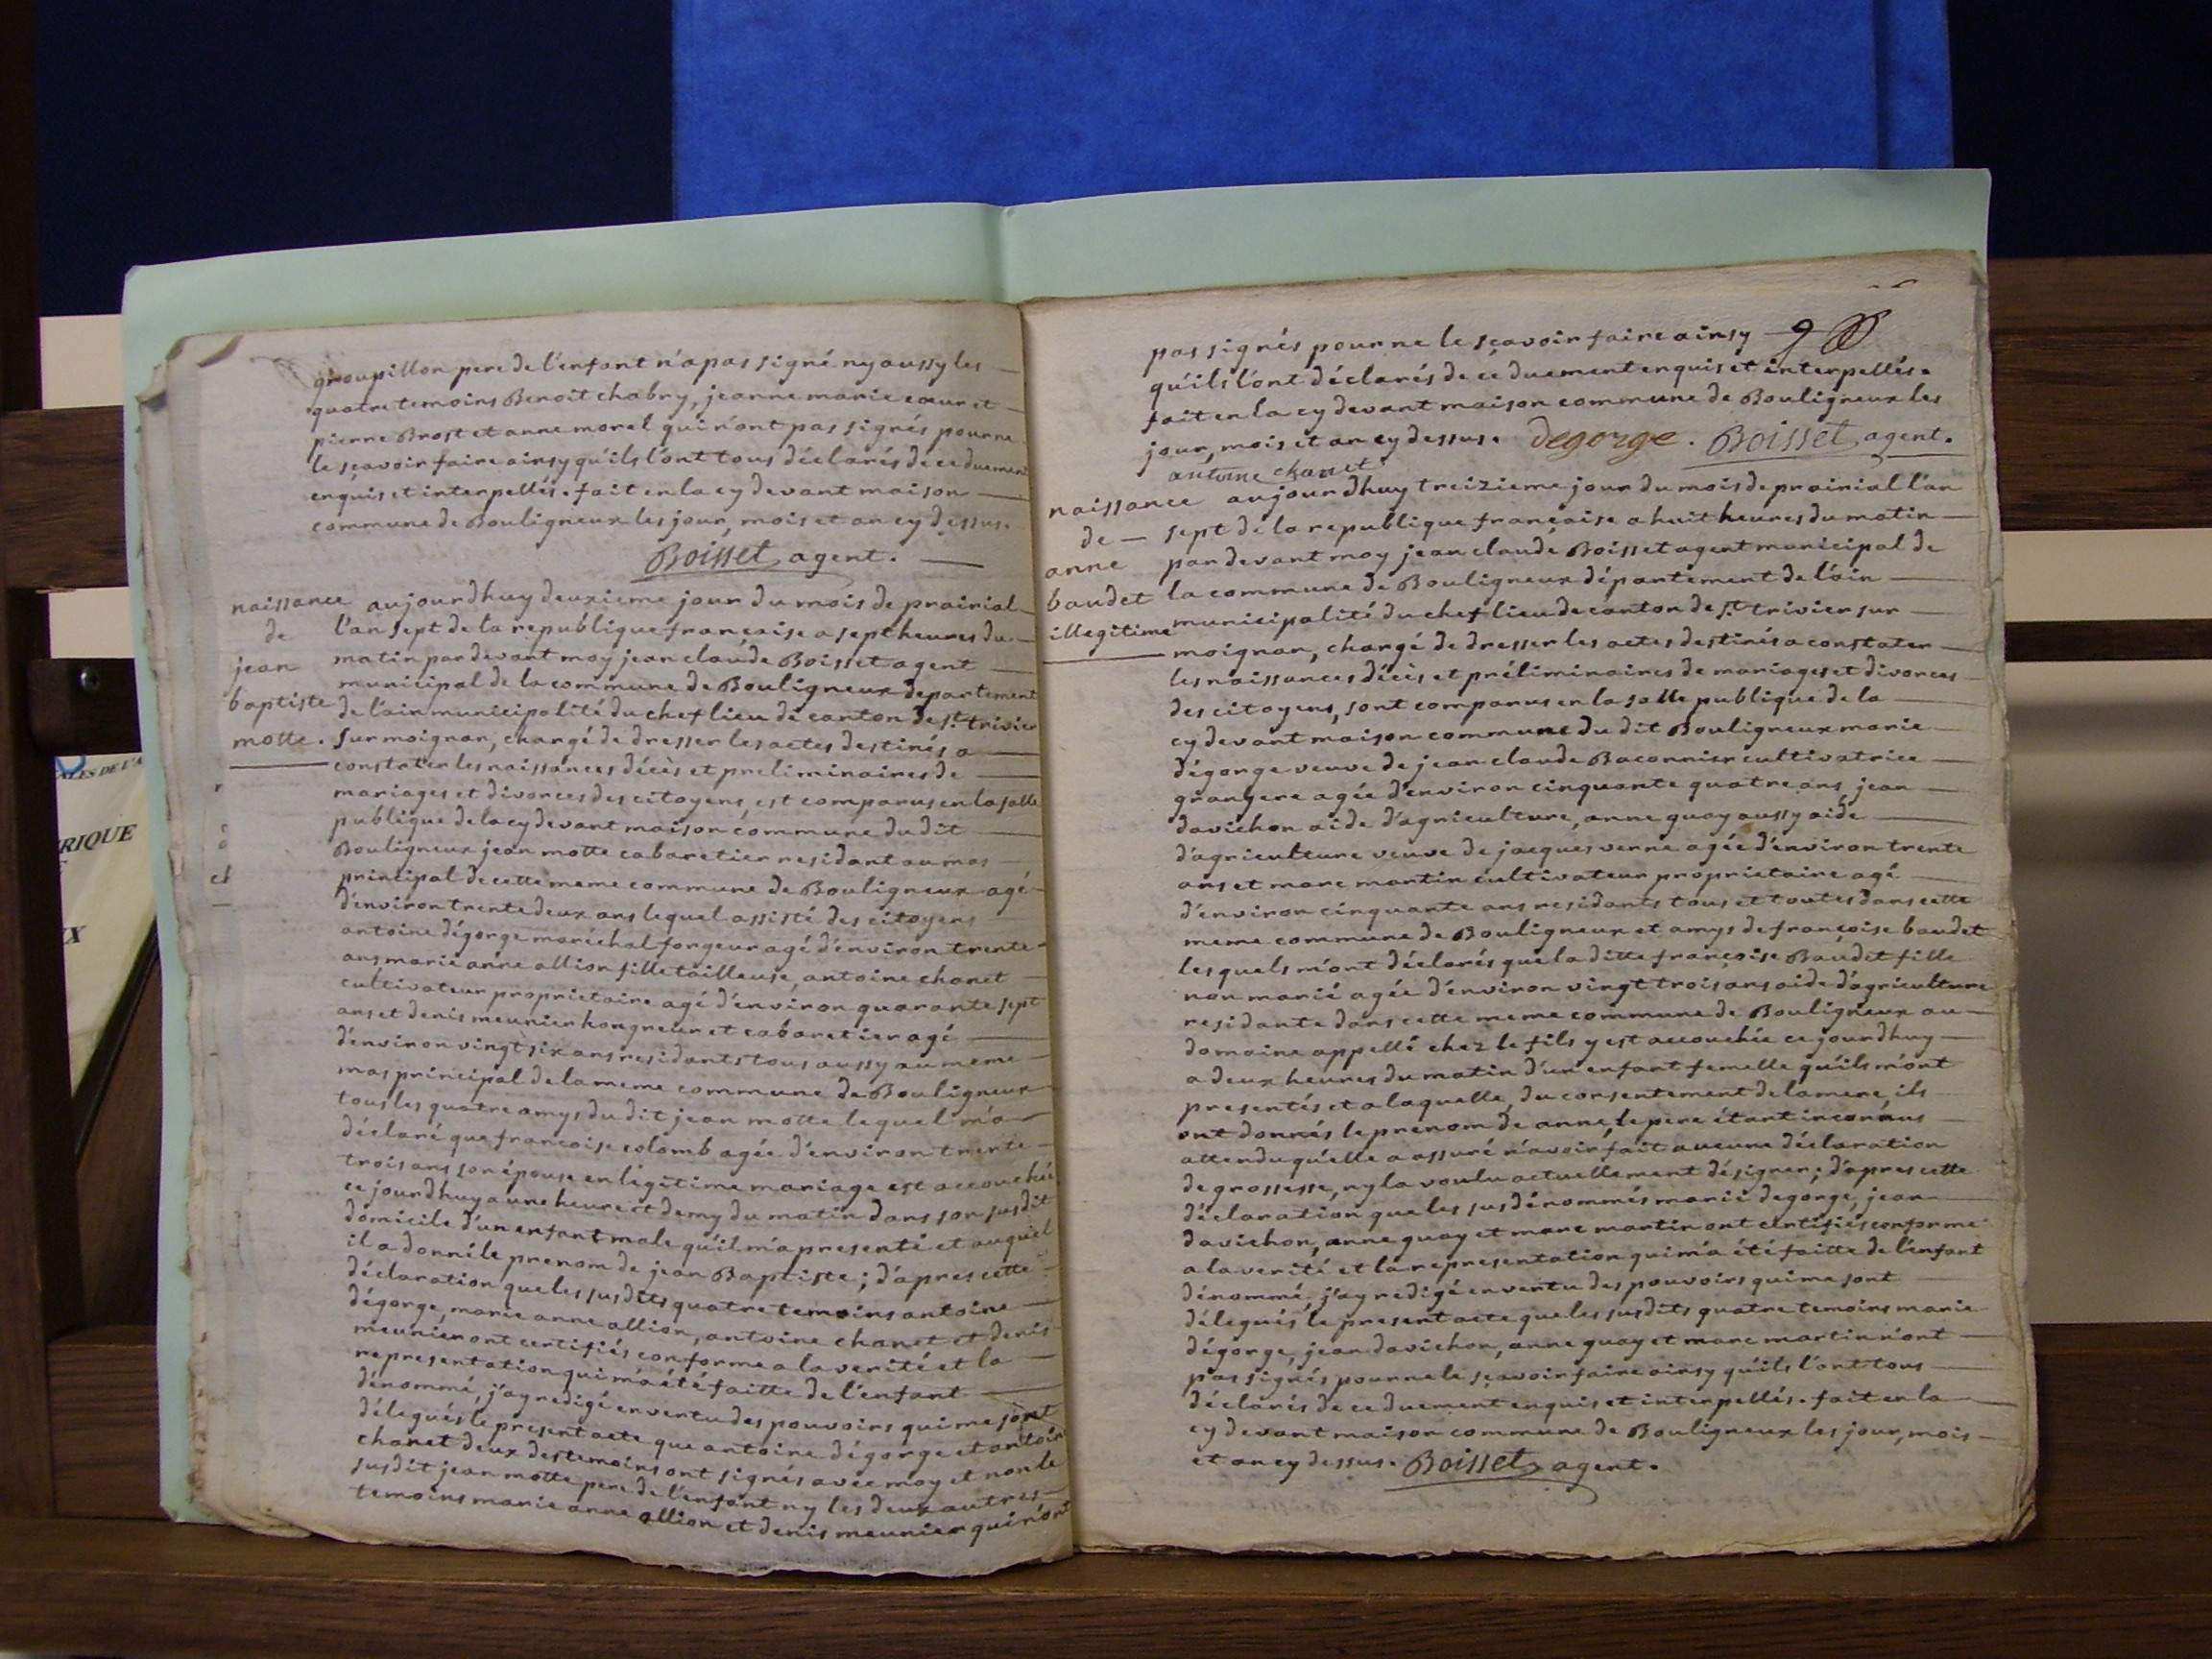 groupillon pere de l'enfant n'a pas signé ny aussy les
quatre temoins Benoit chabry, jeanne marie cœur et
pierre Brost et anne morel qui n'ont pas signés pour ne
le sçavoir faire ainsy qu'ils l'ont tous déclarés de ce duement
enquis et interpellés. fait en la cy devant maison
commune de Bouligneux les jour, mois et an cy dessus.
Boisset agent.
naissance
de
jean
baptiste
motte.
aujourdhuy deuxieme jour du mois de prairial
l'an sept de la republique française a sept heures du
matin par devant moy jean claude Boisset agent
municipal de la commune de Bouligneux departement
de l'ain municipalité du chef lieu de canton de st. trivier
sur moignan, chargé de dresser les actes destinés a
constater les naissances décès et preliminaires de
mariages et divorces des citoyens, est comparus en la salle
publique de la cy devant maison commune du dit
Bouligneux jean motte cabaretier residant au mas
principal de cette meme commune de Bouligneux agé
d'environ trente deux ans lequel assisté des citoyens
antoine dégorge maréchal forgeur agé d'environ trente
ans, marie anne allion fille tailleuse, antoine chanet
cultivateur proprietaire agé d'environ quarante sept
ans et denis meunier hongreur et cabaretier agé
d'environ vingt six ans residants tous aussy au meme
mas principal de la meme commune de Bouligneux
tous les quatre amys du dit jean motte lequel m'a
déclaré que francoise colomb agée d'environ trente
trois ans son épouse en légitime mariage est accouchée
ce jourdhuy a une heure et demy du matin dans son susdit
domicile d'un enfant male qu'il m'a presenté et auquel
il a donné le prenom de jean Baptiste; d'apres cette
déclaration que les susdits quatre temoins antoine
dégorge, marie anne allion, antoine chanet et denis
meunier ont certifiés conforme a la verité et la
representation qui m'a été faitte de l'enfant
dénommé, j'ay redigé en vertu des pouvoirs qui me sont
délegués le present acte que antoine dégorge et antoine
chanet deux des temoins ont signés avec moy et non le
susdit jean motte pere de l'enfant ny les deux autres
temoins marie anne allion et denis meunier qui n'ont
pas signés pour ne le sçavoir faire ainsy
qu'ils l'ont déclarés de ce duement enquis et interpellés.
fait en la cy devant maison commune de Bouligneux les
jour, mois et an cy dessus. degorge. Boisset agent.
antoine chanet
naissance
de
anne
baudet
illegitime
aujourdhuy treizieme jour du mois de prairial l'an
sept de la republique française a huit heures du matin
par devant moy jean claude Boisset agent municipal de
la commune de Bouligneux département de l'ain
municipalité du chef lieu de canton de st. trivier sur
moignan, chargé de dresser les actes destinés a constater
les naissances décès et préliminaires de mariages et divorces
des citoyens, sont comparus en la salle publique de la
cy devant maison commune du dit Bouligneux marie
dégorge veuve de jean claude Baconnier cultivatrice
grangere agée d'environ cinquante quatre ans, jean
davichon aide d'agriculture, anne guay aussy aide
d'agriculture veuve de jacques verne agée d'environ trente
ans et marc martin cultivateur proprietaire agé
d'environ cinquante ans residants tous et toutes dans cette
meme commune de Bouligneux et amys de françoise baudet
les quels m'ont déclarés que la ditte françoise Baudet fille
non marié agée d'environ vingt trois ans aide d'agriculture
residante dans cette meme commune de Bouligneux au
domaine appellé chez le fils y est accouchée ce jourdhuy
a deux heures du matin d'un enfant femelle qu'ils m'ont
presentés et a laquelle, du consentement de la mere, ils
ont donnés le prenom de anne, le pere étant inconnus
attendu qu'elle a assuré n'avoir fait aucune déclaration
de grossesse, ny la voulu actuellement désigner; d'apres cette
déclaration que les susdénommés marie degorge, jean
davichon, anne guay et marc martin ont certifiés conforme
a la verité et la representation qui m'a été faitte de l'enfant
dénommé, j'ay redigé en vertu des pouvoirs qui me sont
délegués le present acte que les susdits quatre temoins marie
dégorge, jean davichon, anne guay et marc martin n'ont
pas signés pour ne le sçavoir faire ainsy qu'ils l'ont tous
déclarés de ce duement enquis et interpellés. fait en la
cy devant maison commune de Bouligneux les jour, mois
et an cy dessus. Boisset agent.
RIQUE